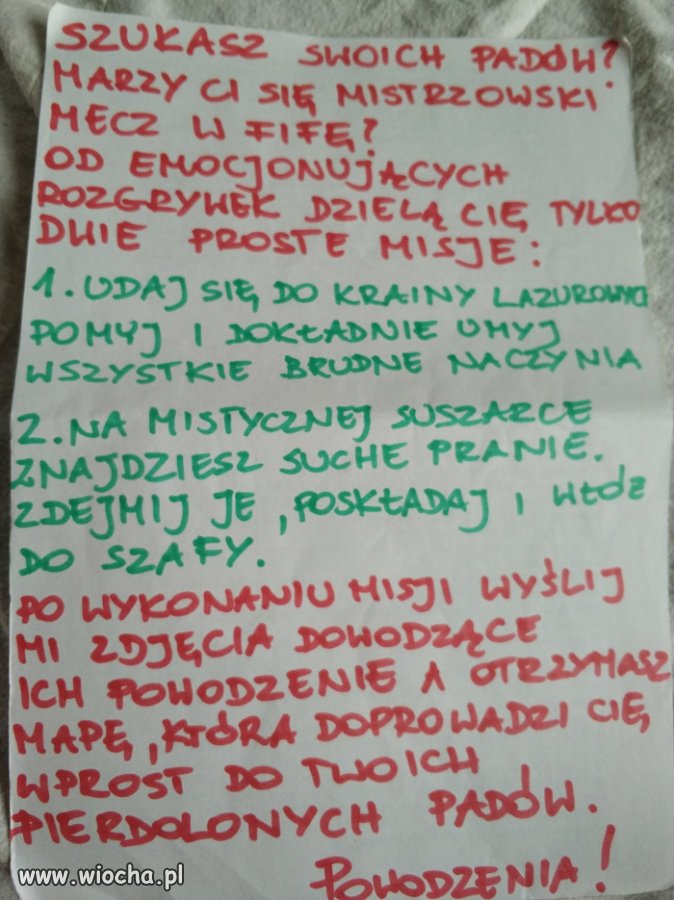 SZUKASZ SWOICH PADÓW?
MARZY CI SIĘ MISTRZOWSKI
MECZ W FIFĘ?
OD EMOCJONUJĄCYCH
ROZGRYWEK DZIELĄ CIĘ TYLKO
DWIE PROSTE MISJE:
1. UDAJ SIĘ DO KRAINY LAZUROWYCH
POMYJ I DOKŁADNIE UMYJ
WSZYSTKIE BRUDNE NACZYNIA
2. NA MISTYCZNEJ SUSZARCE
ZNAJDZIESZ SUCHE PRANIE.
ZDEJMIJ JE, POSKŁADAJ I WŁÓŻ
DO SZAFY.
PO WYKONANIU MISJI WYŚLIJ
MI ZDJĘCIA DOWODZĄCE
ICH POWODZENIE A OTRZYMASZ
MAPĘ, KTÓRA DOPROWADZI CIĘ
WPROST DO TWOICH
PIERDOLONYCH PADÓW.
POWODZENIA!
www.wiocha.pl